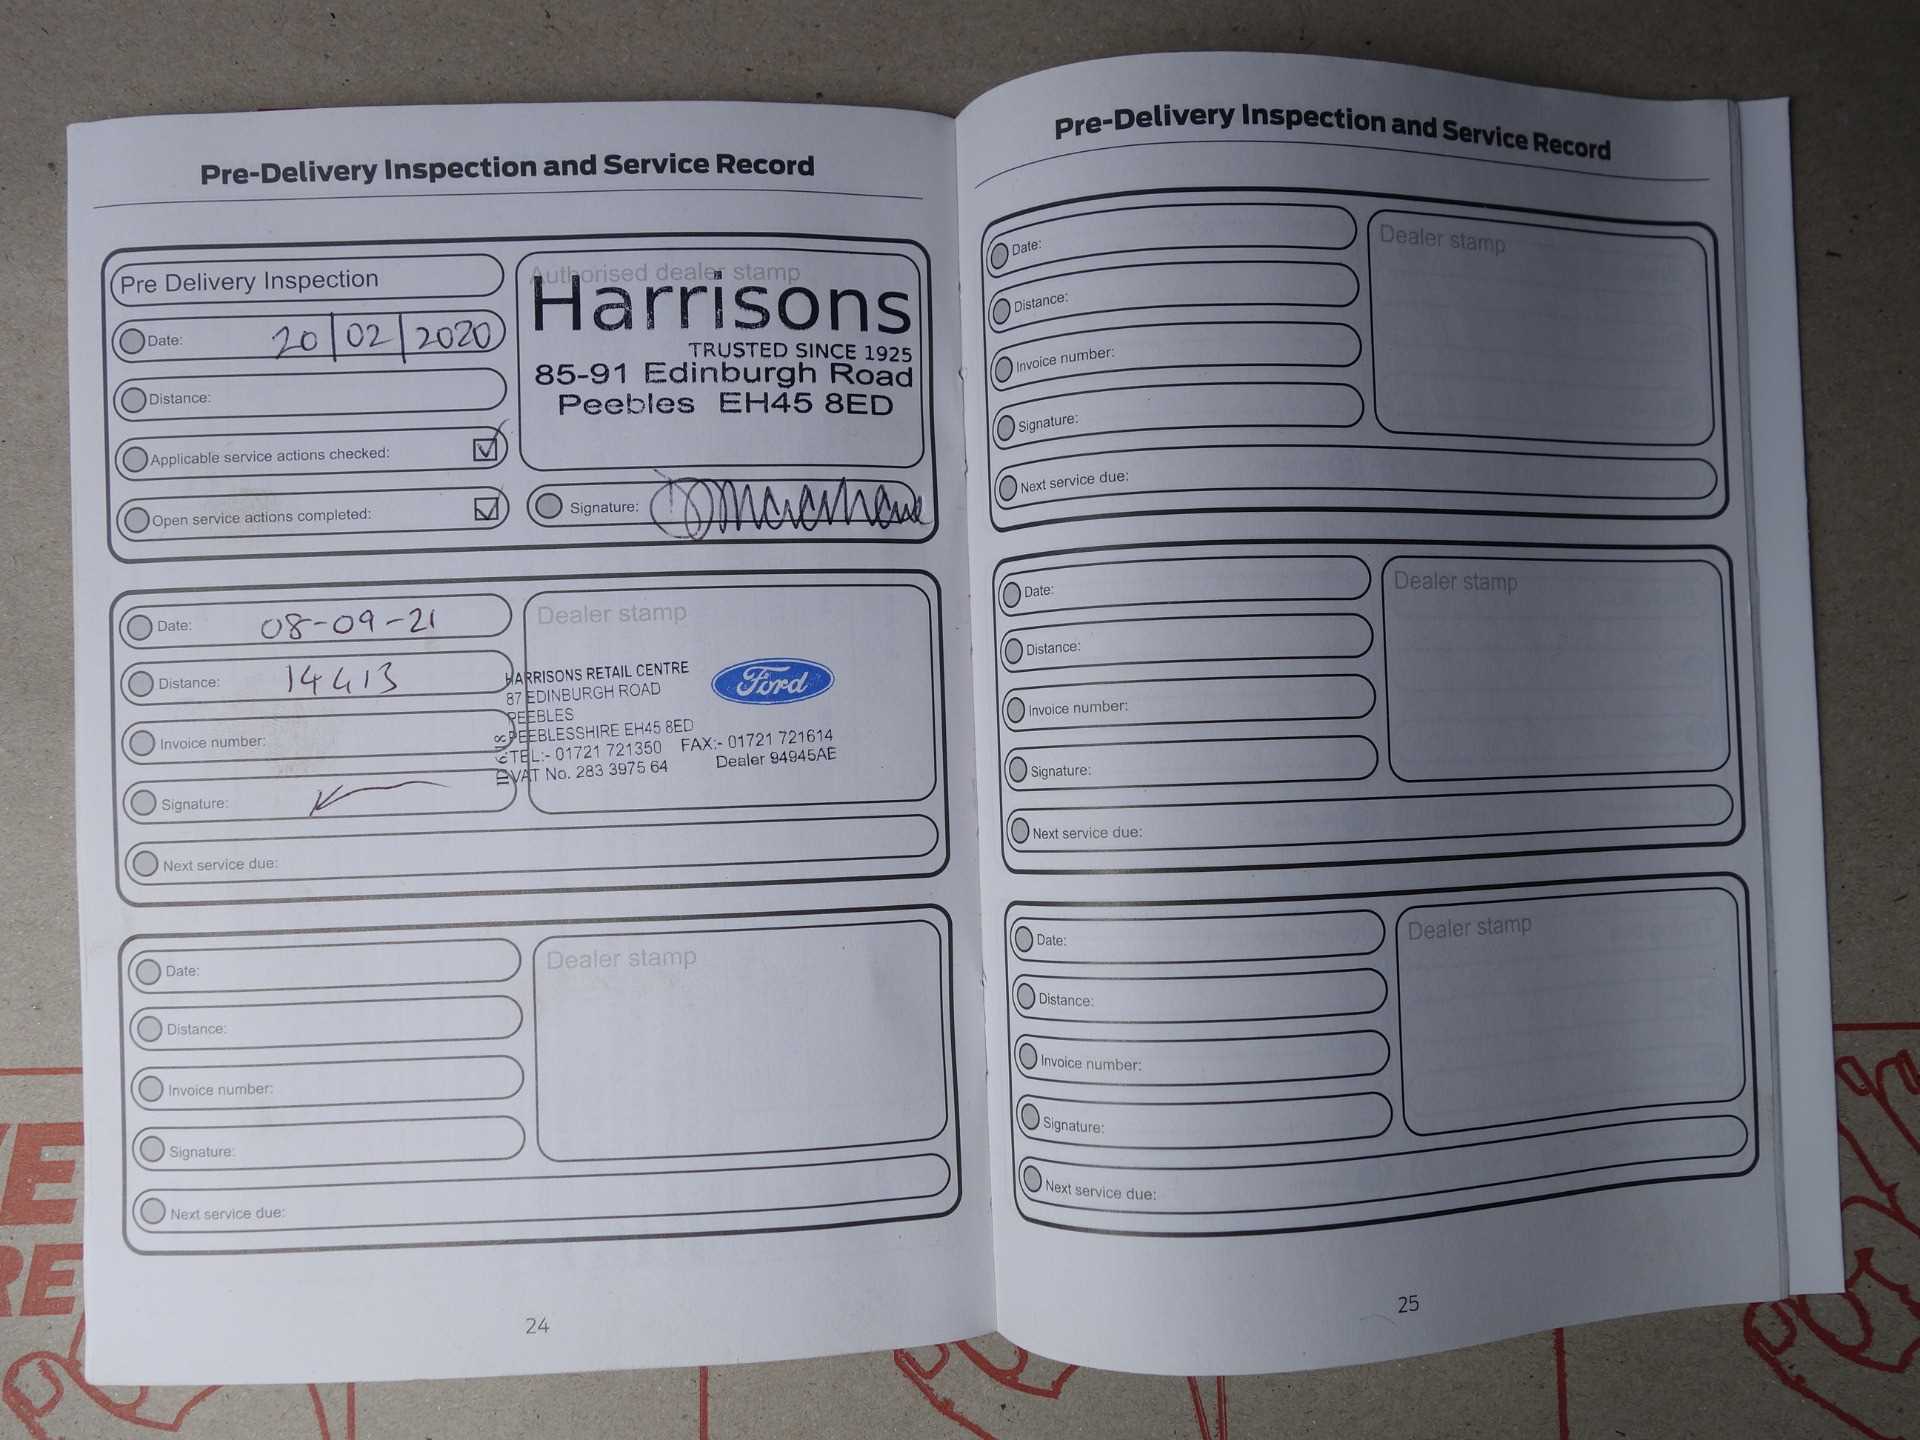 Pre-Delivery Inspection and Service Record
Pre Delivery Inspection
Date: 20/02/2020
Distance:
Applicable service actions checked:
Open service actions completed:
Authorised dealer stamp
Harrisons
TRUSTED SINCE 1925
85-91 Edinburgh Road
Peebles EH45 8ED
Signature:
Date: 08-09-21
Distance: 14413
Invoice number:
Signature:
Next service due:
Dealer stamp
HARRISONS RETAIL CENTRE
87 EDINBURGH ROAD
PEEBLES
PEEBLESSHIRE EH45 8ED
TEL:- 01721 721350 FAX:- 01721 721614
VAT No. 283 3975 64 Dealer 94945AE
Ford
Date:
Distance:
Invoice number:
Signature:
Next service due:
Dealer stamp
24
Pre-Delivery Inspection and Service Record
Date:
Distance:
Invoice number:
Signature:
Next service due:
Dealer stamp
Date:
Distance:
Invoice number:
Signature:
Next service due:
Dealer stamp
Date:
Distance:
Invoice number:
Signature:
Next service due:
Dealer stamp
25